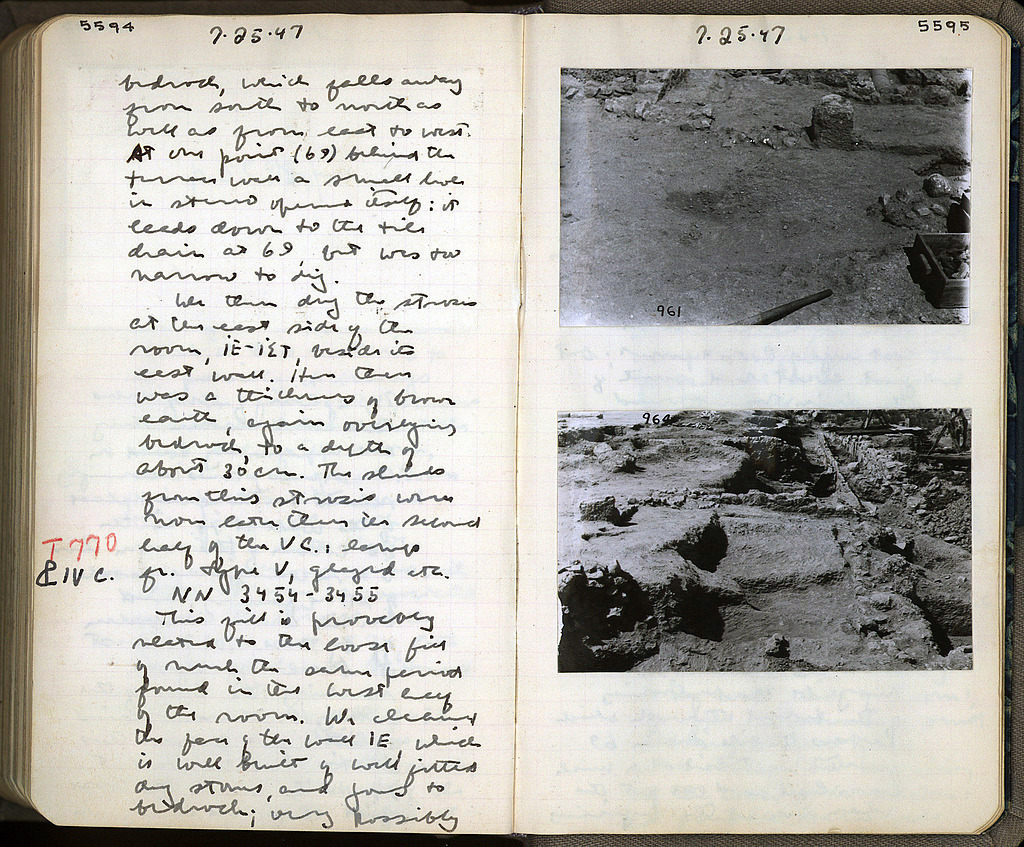 5594
7.25.47
bedrock, which falls away
from south to north as
well as from east to west.
At one point (69) behind the
terrace wall a small hole
in stereo opened itself: it
leads down to the tile
drain at 69, but was too
narrow to dig.
We then dug the strosis
at the east side of the
room, ΙΕ-ΙΣΤ, beside its
east wall. Here there
was a thickness of brown
earth, again overlying
bedrock, to a depth of
about 30 cm. The sherds
from this strosis were
none later than the second
T 770
half of the V C.; lamps
IV C.
fr. type V, glazed etc.
NN 3454-3455
This fill is probably
related to the loose fill
of much the same period
found in the west
of the room. We cleaned
the face of the wall ΙΕ, which
is well built of well fitted
dry stones, and going to
bedrock; very possibly
7.25.47
5595
961
964